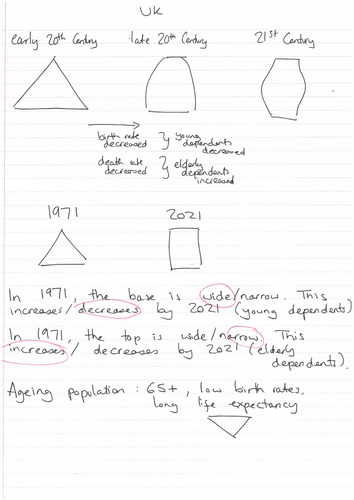 UK
early 20th Century late 20th Century 21st Century
birth rate decreased } young dependents decreased
death rate decreased } elderly dependents increased
1971 2021
In 1971, the base is wide/narrow. This
increases/decreases by 2021 (young dependents)
In 1971, the top is wide/narrow. This
increases/decreases by 2021 (elderly
dependents).
Ageing population : 65+, low birth rates,
long life expectancy